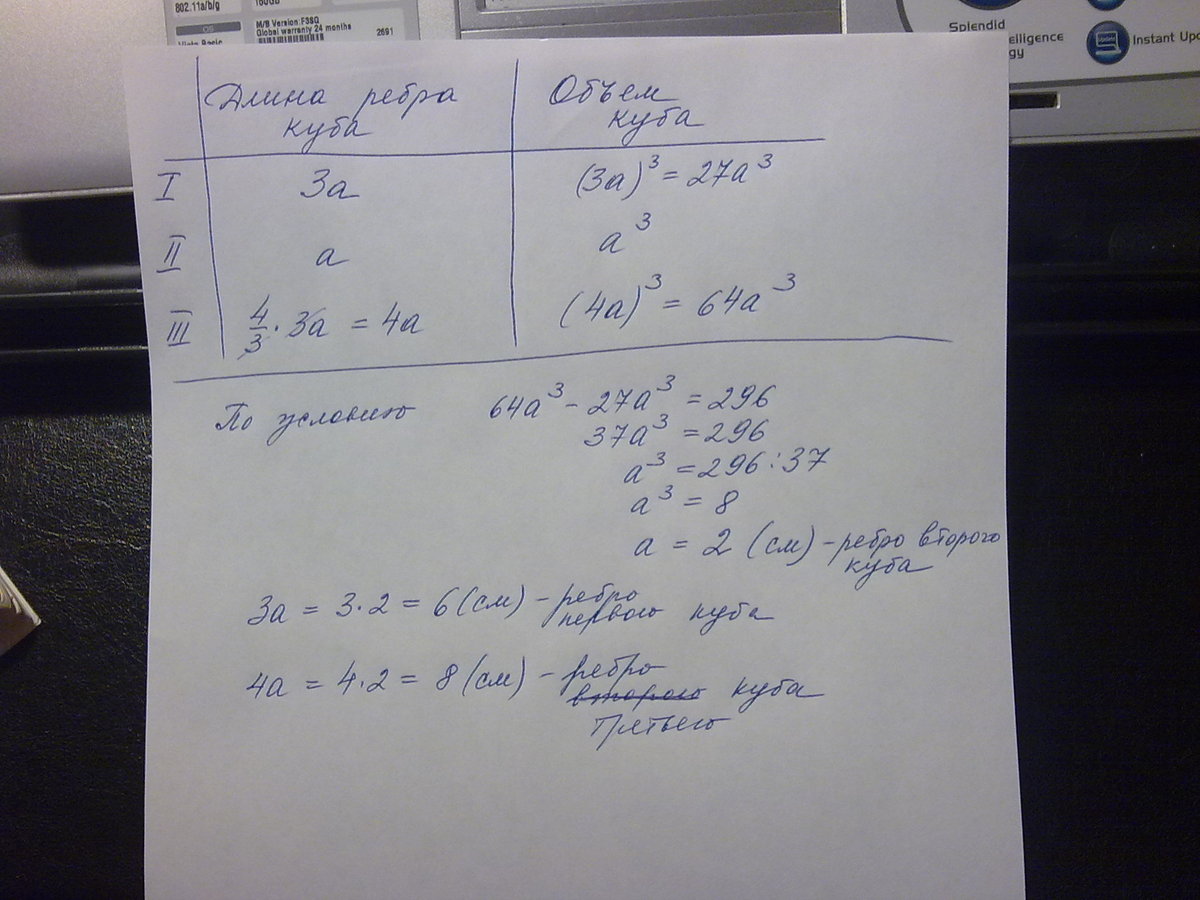 802.11a/b/g
160GB
M/B Version:F3SG
Global warranty 24 months
2691
Splendid
elligence
gy
Instant Upd
Длина ребра куба
Объем куба
I 3a (3a)³ = 27a³
II a a³
III 4/3 · 3a = 4a (4a)³ = 64a³
По условию 64a³ - 27a³ = 296
37a³ = 296
a³ = 296 : 37
a³ = 8
a = 2 (см) - ребро второго
куба
3a = 3·2 = 6 (см) - ребро
первого куба
4a = 4·2 = 8 (см) - ребро
второго куба
Третьего